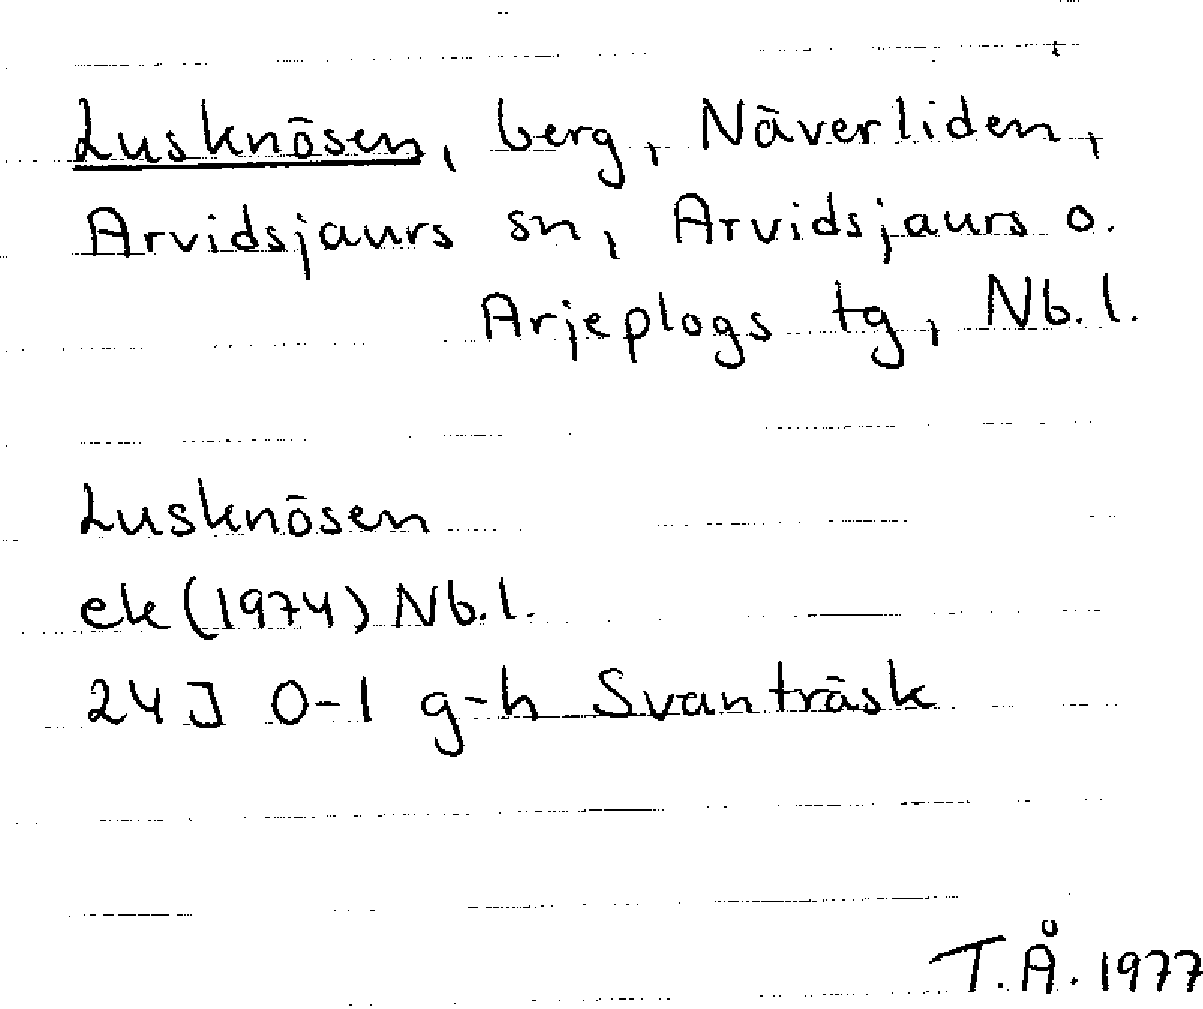 Lusknösen, berg, Näverliden,
Arvidsjaurs sn, Arvidsjaurs o.
Arjeplogs tg, Nb.l.
Lusknösen
ek (1974) Nb.l.
24J 0-1 g-h Svanträsk
T.Å. 1977